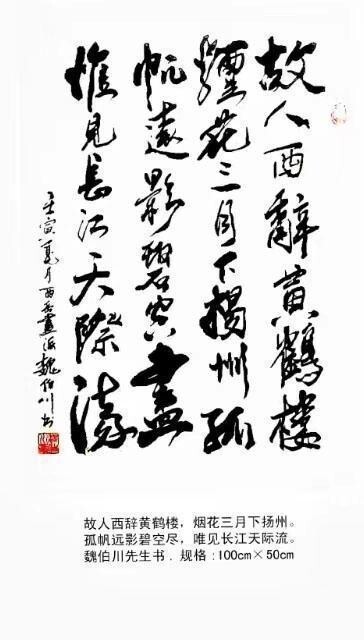 故人西辭黄鶴樓
煙花三月下揚州孤
帆遠影碧空盡
惟見長江天際流
壬寅夏月西岳畫派魏伯川书
故人西辞黄鹤楼，烟花三月下扬州。
孤帆远影碧空尽，唯见长江天际流。
魏伯川先生书．规格：100cm×50cm